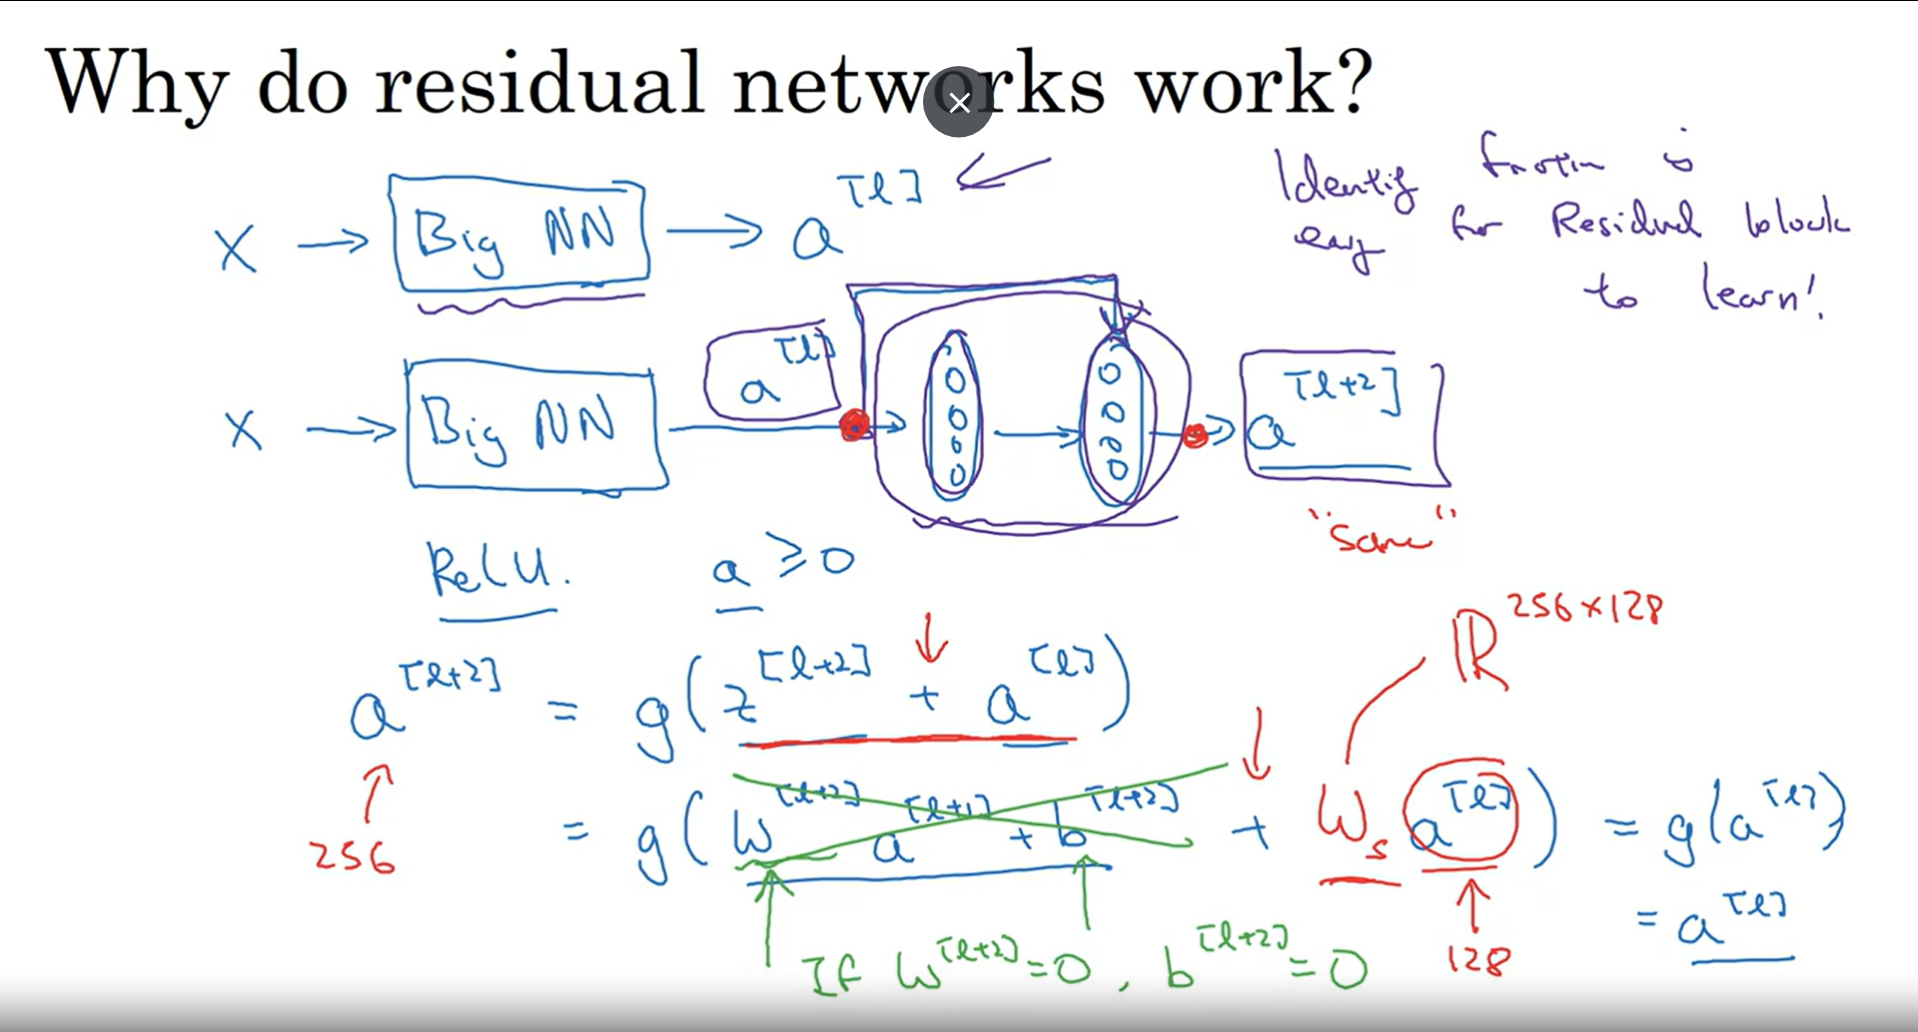 Why do residual networks work?
Identity function is
easy for Residual block
to learn!
X → Big NN → a^[l]
X → Big NN → a^[l] → → → a^[l+2]
"same"
ReLU. a ≥ 0
R^256×128
a^[l+2] = g(z^[l+2] + a^[l])
256
= g(W^[l+2] a^[l+1] + b^[l+2] + W_s a^[l]) = g(a^[l])
= a^[l]
If W^[l+2] = 0, b^[l+2] = 0
128